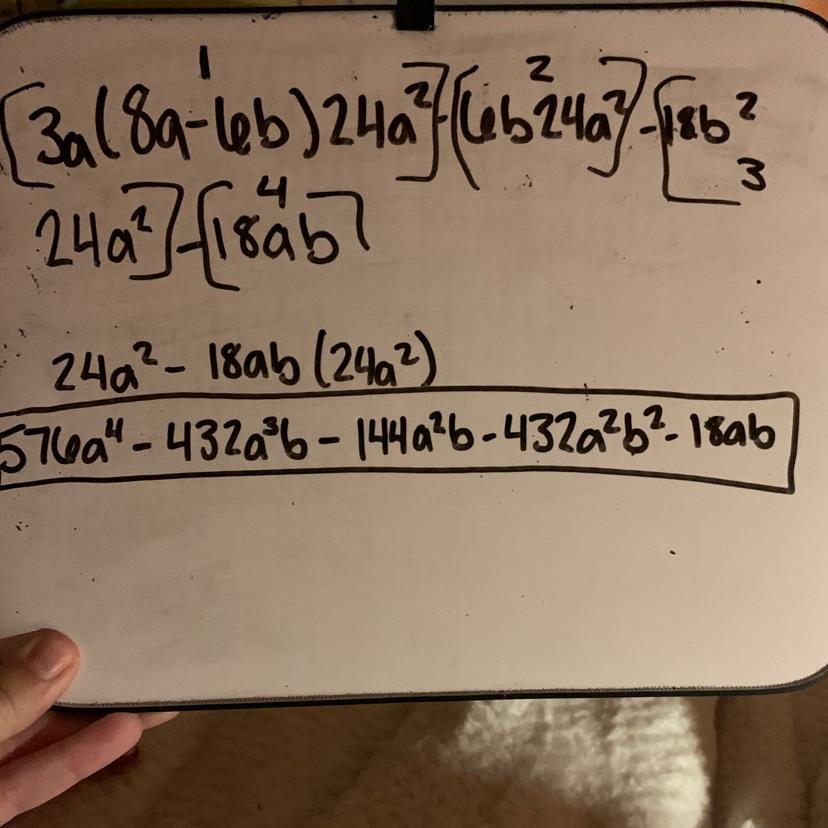 1 2
[3a(8a-6b)24a²]-(6b24a²]-[18b²
3
4
24a²]-[18ab]
24a² - 18ab (24a²)
576a⁴ - 432a³b - 144a²b - 432a²b² - 18ab